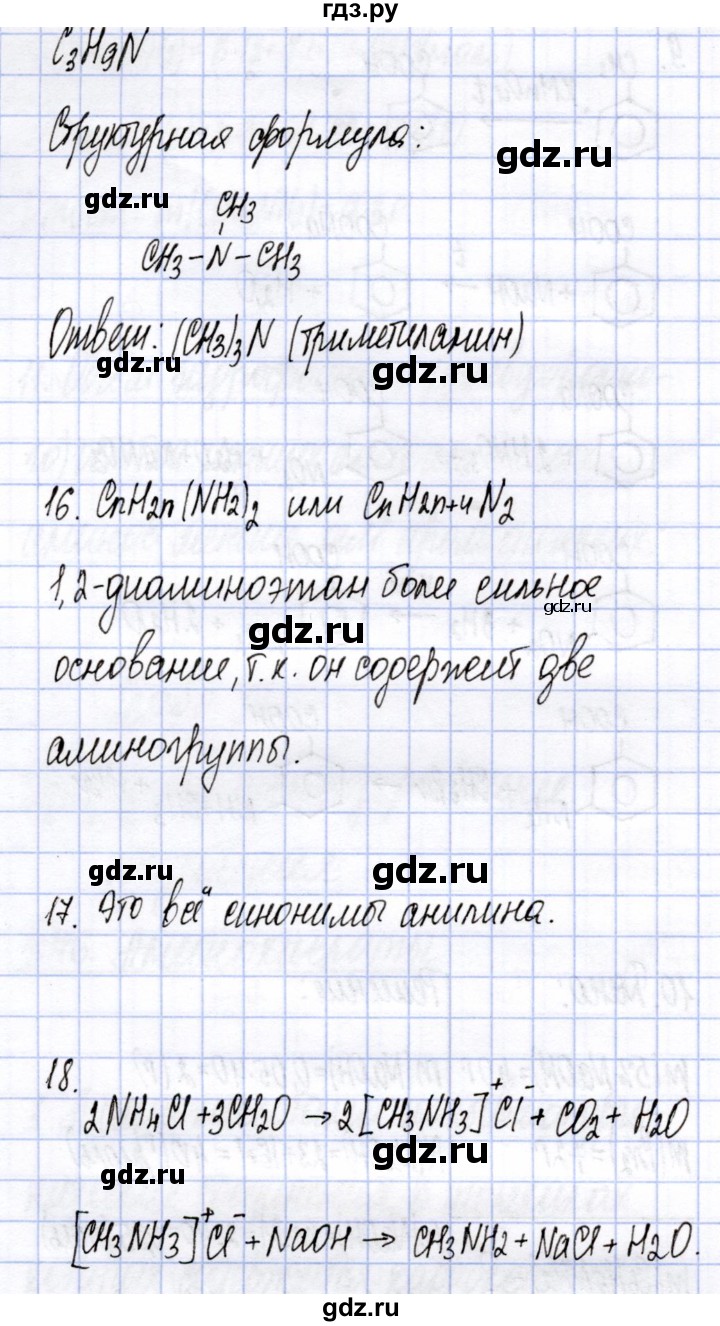 гдз.ру
C3H9N
Структурная формула:
gdz.ru
gdz.ru
CH3
CH3-N-CH3
Ответ: (CH3)3N (триметиламин)
gdz.ru
gdz.ru
16. CnH2n(NH2)2 или CnH2n+4N2
1,2-диаминоэтан более сильное
gdz.ru
gdz.ru
основание, т.к. он содержит две
аминогруппы.
gdz.ru
gdz.ru
17. Это всё синонимы анилина.
18.
2NH4Cl+3CH2O→2[CH3NH3]+Cl-+CO2+H2O
gdz.ru
gdz.ru
[CH3NH3]+Cl-+NaOH→CH3NH2+NaCl+H2O.
gdz.ru